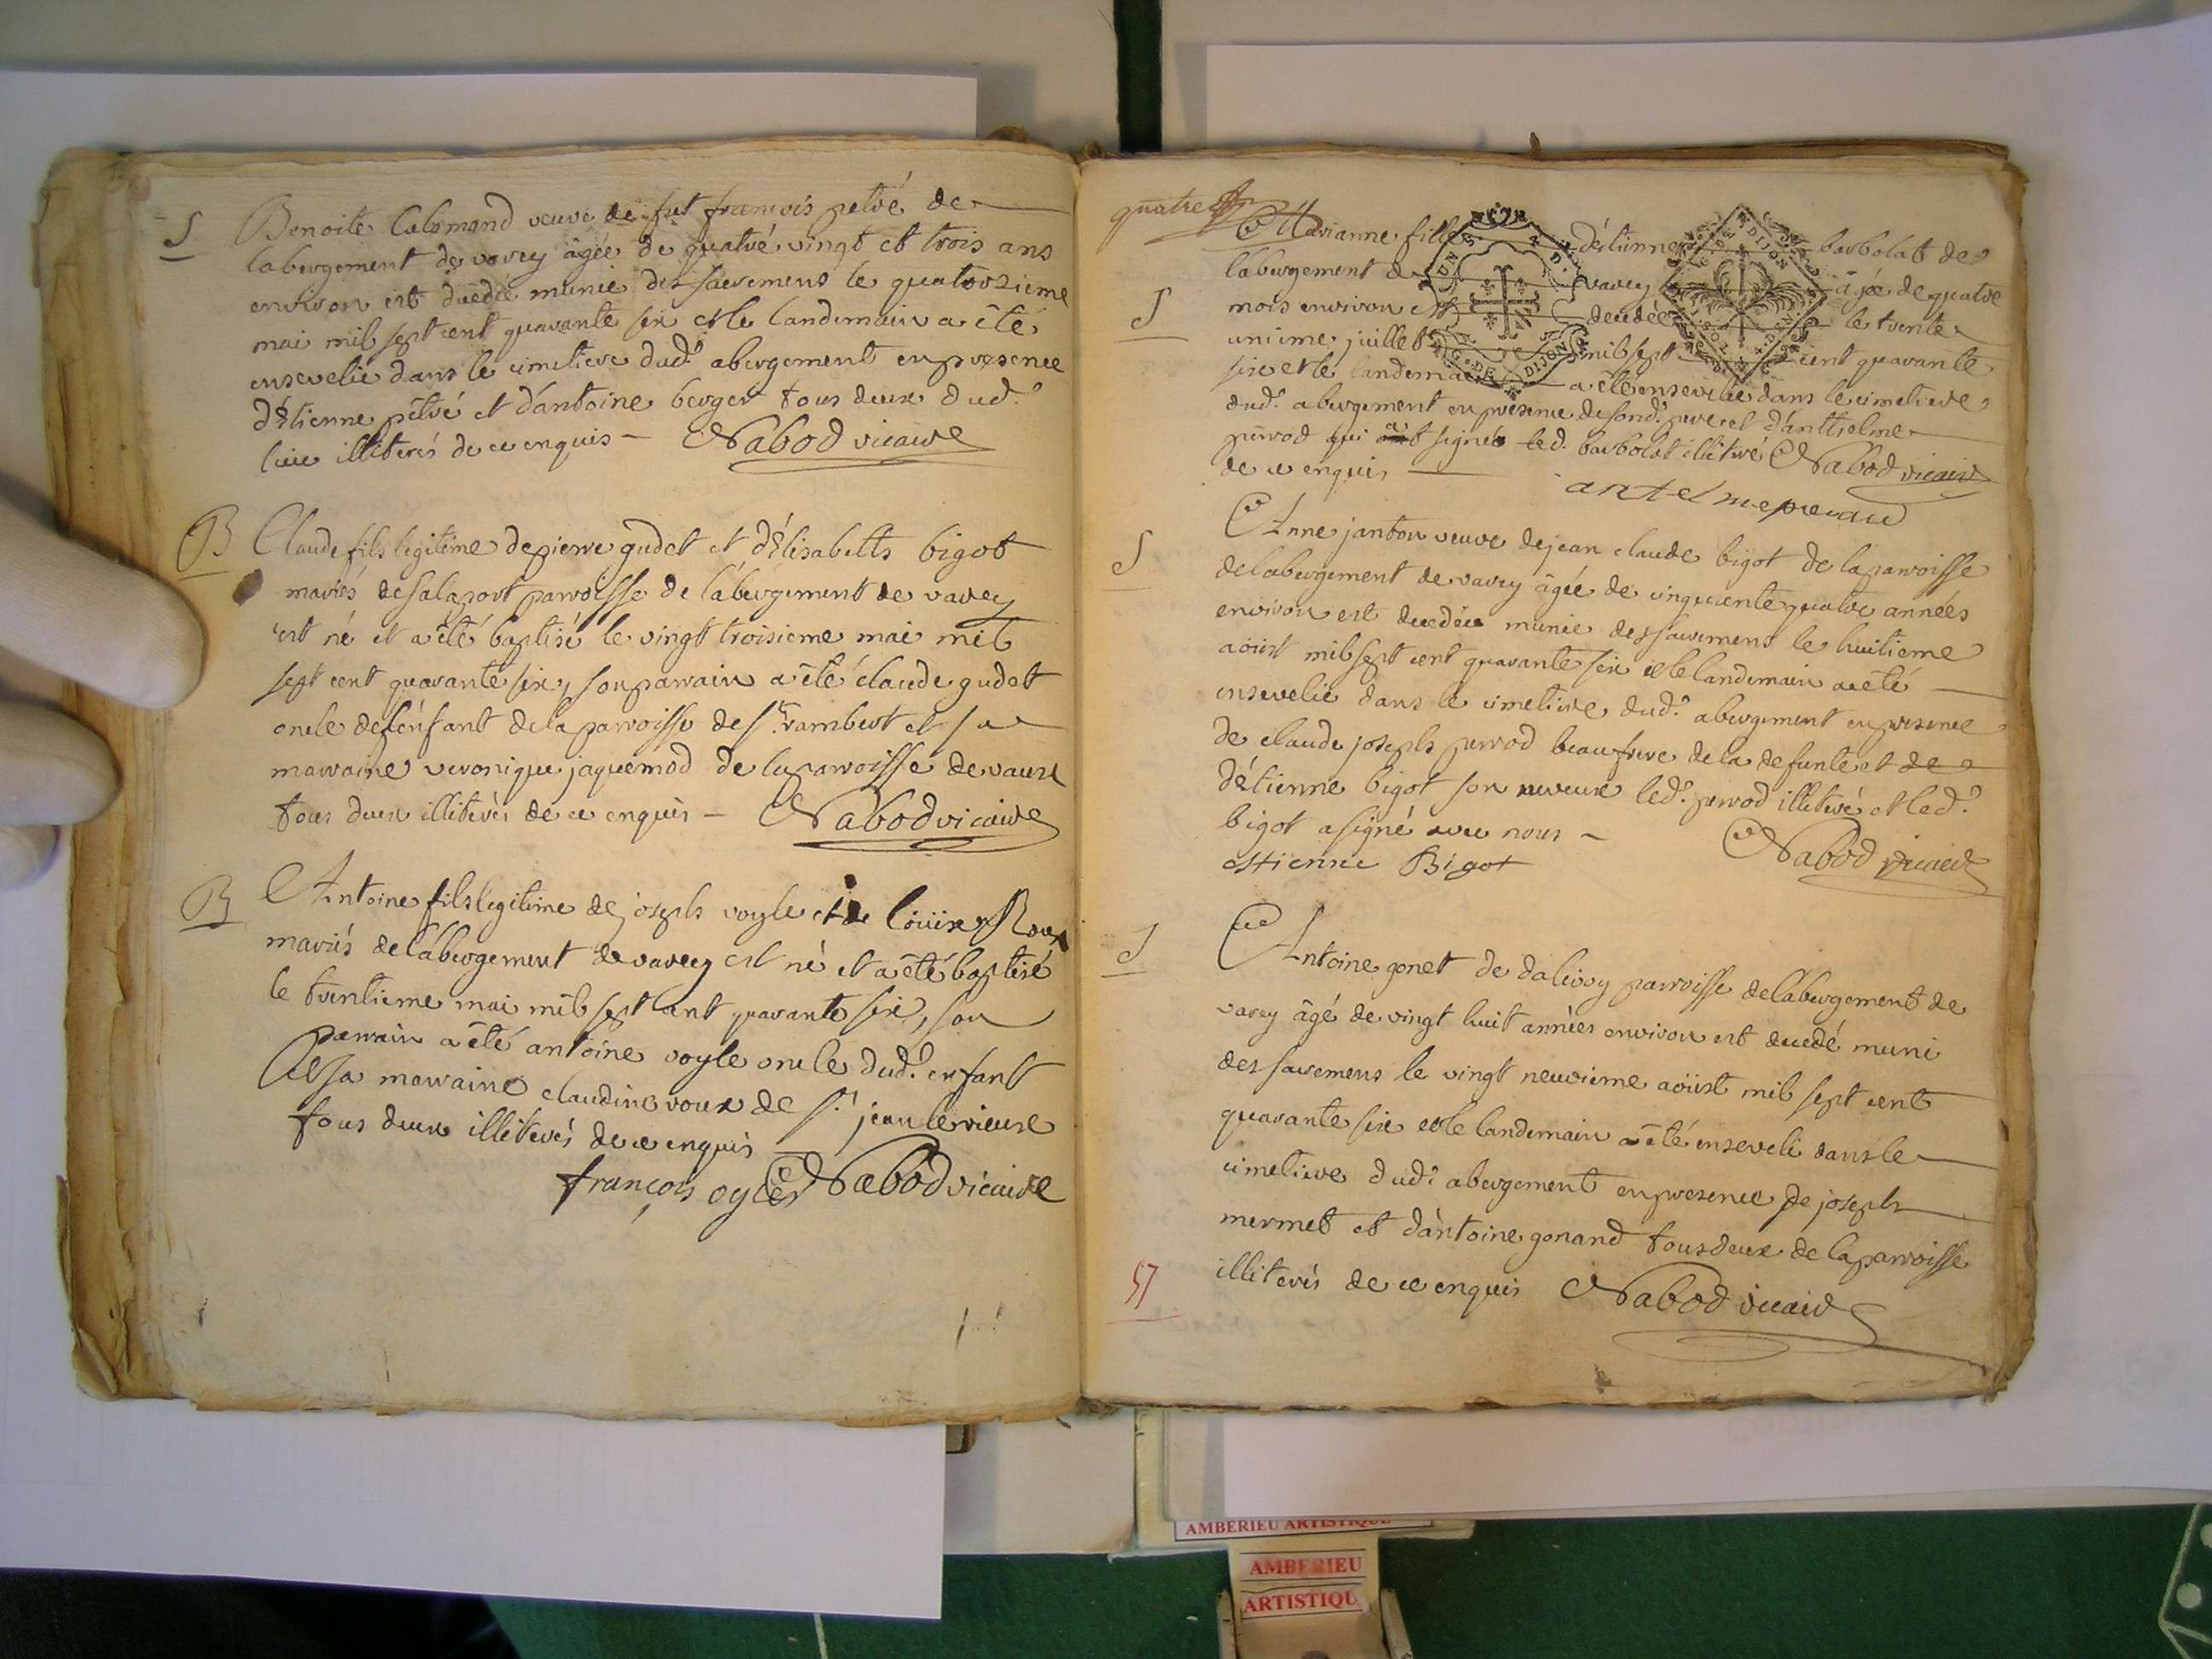 S
Benoite lalemand veuve de fut francois petré de
labergement de varey âgée de quatre vingt et trois ans
environ est ducdée munie des sacremens le quatorzieme
mai mil sept cent quarante six et le landemain a été
ensevelie dans le cimetiere dud.^t abergement en presence
d'étienne pétré et d'antoine berger tous deux dud.^t
lieu illiterés de ce enquis — Nabod vicaire
B
Claude fils legitime de pierre gudet et d'élisabeth bigot
mariés de salaport parroisse de l'abergement de varey
est né et a été baptisé le vingt troisieme mai mil
sept cent quarante six, son parrain a été claude gudet
oncle de l'enfant de la parroisse de s.^t rambert et sa
marraine veronique jaquemod de la parroisse de vaux
tous deux illiterés de ce enquis — Nabod vicaire
B
Antoine fils legitime de joseph voyle et de loüise Roux
mariés de l'abergement de varey est né et a été baptisé
le trentieme mai mil sept cent quarante six, son
parrain a été antoine voyle oncle dud.^t enfant
et sa marraine claudine roux de s.^t jean le vieux
tous deux illiterés de ce enquis
françois Nabod vicaire
quatre
Marianne fille d'étienne barbolat de
labergement de varey âgée de quatre
S
mois environ est decedée le trente
unieme juillet mil sept cent quarante
six et le landemain a été ensevelie dans le cimetiere
dud.^t abergement en presence de sond.^t pere et d'anthelme
perrod qui a signé led.^t barbolat illiteré Nabod vicaire
de ce enquis
UN S 4 D.
G. DE DIJON
G. DE DIJON
antelme
S
Anne janton veuve de jean claude bigot de la parroisse
de labergement de varey âgée de cinquante quatre années
environ est decedée munie des sacremens le huitieme
aoüst mil sept cent quarante six et le landemain a été
ensevelie dans le cimetiere dud.^t abergement en presence
de claude joseph perrod beaufrere de la defunte et de
d'étienne bigot son neveux led.^t perrod illiteré et led.^t
bigot a signé avec nous — Nabod vicaire
estienne Bigot
S
Antoine gonet de dalivoy parroisse de labergement de
varey âgé de vingt huit années environ est decedé muni
des sacremens le vingt neuvieme aoüst mil sept cent
quarante six et le landemain a été enseveli dans le
cimetiere dud.^t abergement en presence de joseph
mermet et d'antoine gonand tous deux de la parroisse
illiterés de ce enquis Nabod vicaire
57
AMBERIEU ARTISTIQUE
AMBERIEU
ARTISTIQU